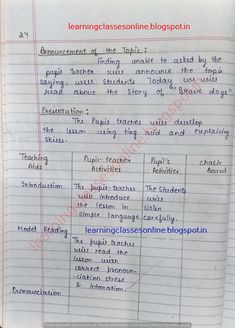 learningclassesonline.blogspot.in
24
Announcement of the Topic :
Finding unable to asked by the
pupil teacher will announce the topic
saying, well students Today we will
read about the story of "Brave dogs"
Presentation :
The Pupil teacher will develop
the lesson using ting aid and explaining
skill.
Teaching Aids
Pupil-Teacher Activities
Pupil's Activities
Chalk Board
Introduction
The pupil-teacher
will introduce
the lesson in
simple language
The Students
will
listen
carefully.
learningclassesonline.blogspot.in
Model Reading
The pupil teacher
will read the
lesson with
correct pronoun-
ciation stress
& Intonation.
Pronounciation